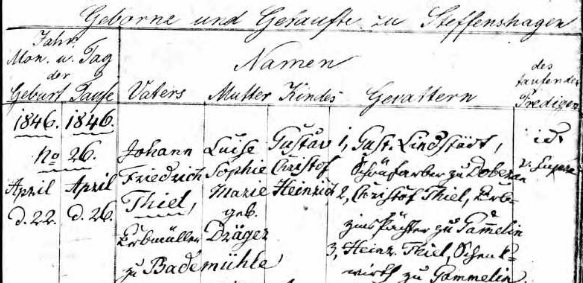 Geborne und Getaufte zu Steffenshagen
Jahr, Mon. u. Tag der Geburt Taufe
Namen
Vaters Mutter Kindes Gevattern
des taufenden Predigers
1846. 1846.
No 26.
April April
d. 22. d. 26.
Johann
Friedrich
Thiel,
Erbmüller
zu Bademühle
Luise
Sophie
Marie
geb.
Dräger
Gustav
Christof
Heinrich
1, Gust. Lindstädt,
Schönfärber zu Doberan
2, Christof Thiel, Erb-
zinspächter zu Gamelin
3, Heinr. Thiel, Schenk-
wirth zu Gammelin
id.